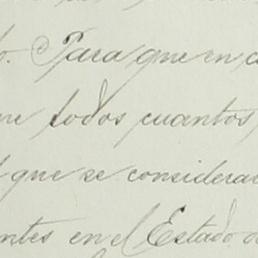 Para que en
todos cuantos
que se considera
en el Estado